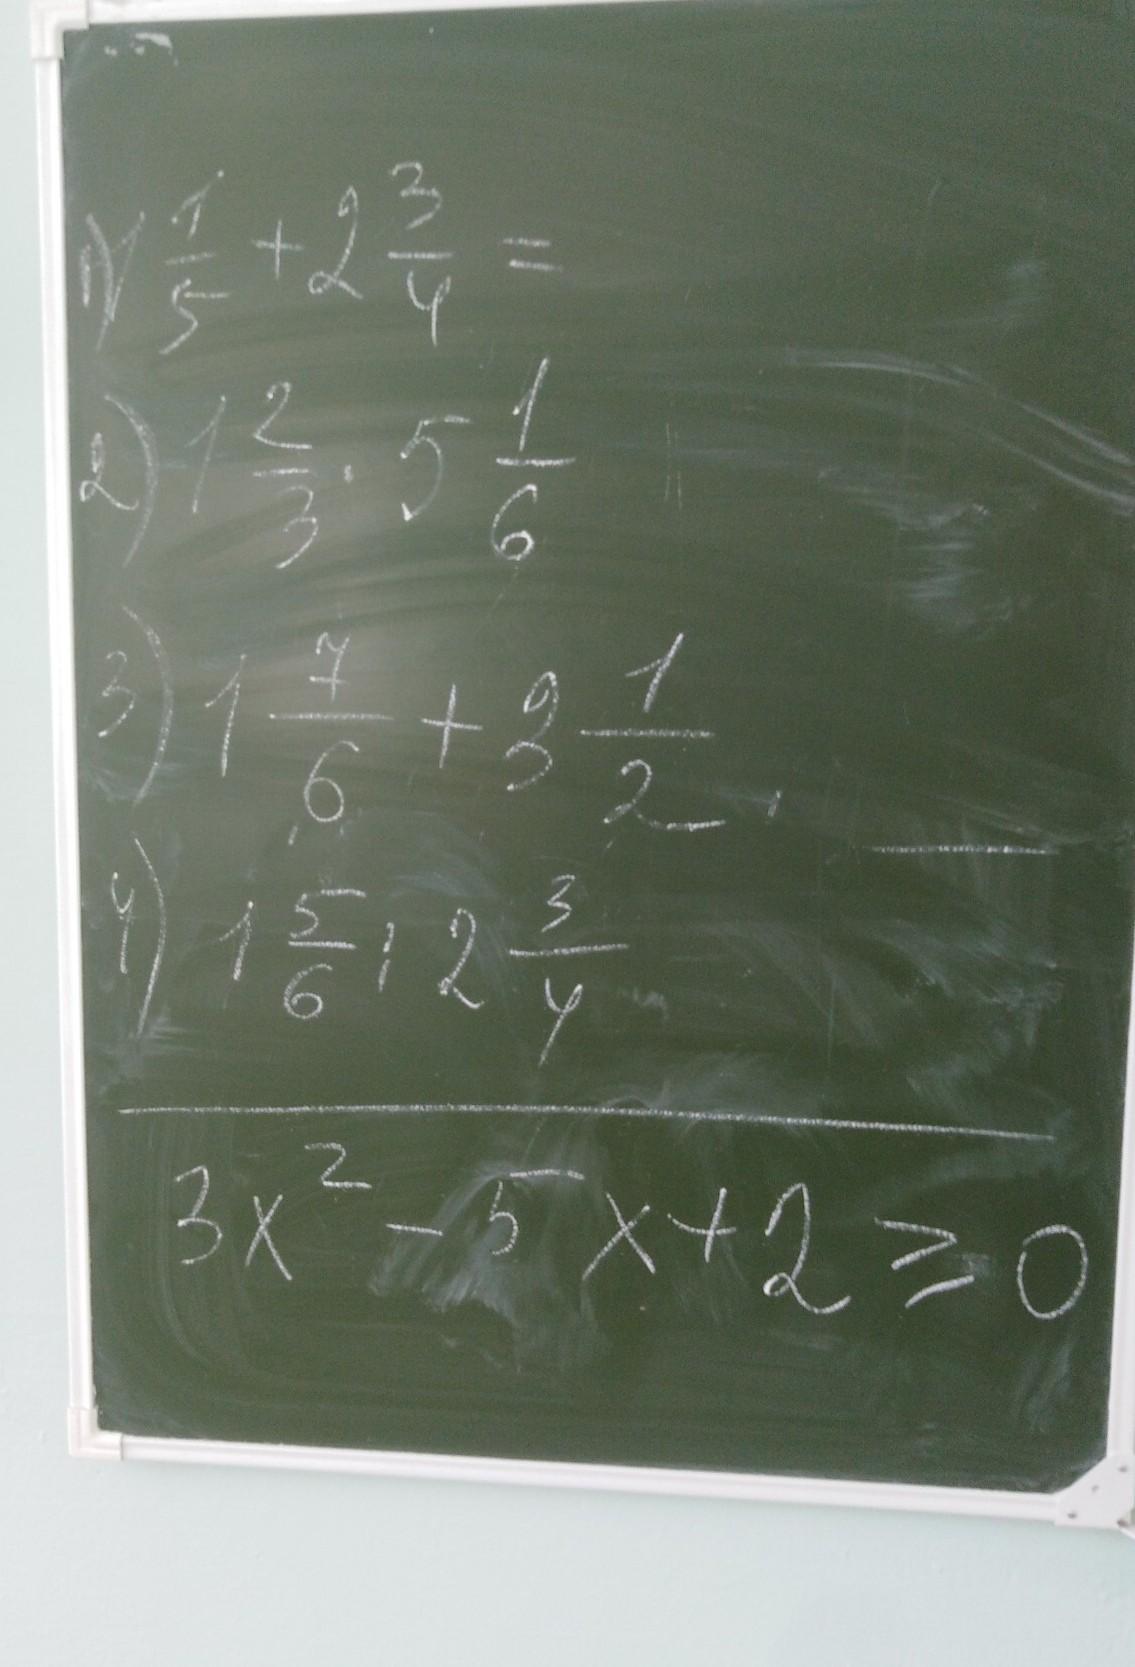 1) 1/5 + 2 3/4 =
2) 1 2/3 · 5 1/6
3) 1 7/6 + 3 1/2
4) 1 5/6 : 2 3/4
3x² - 5x + 2 ≥ 0